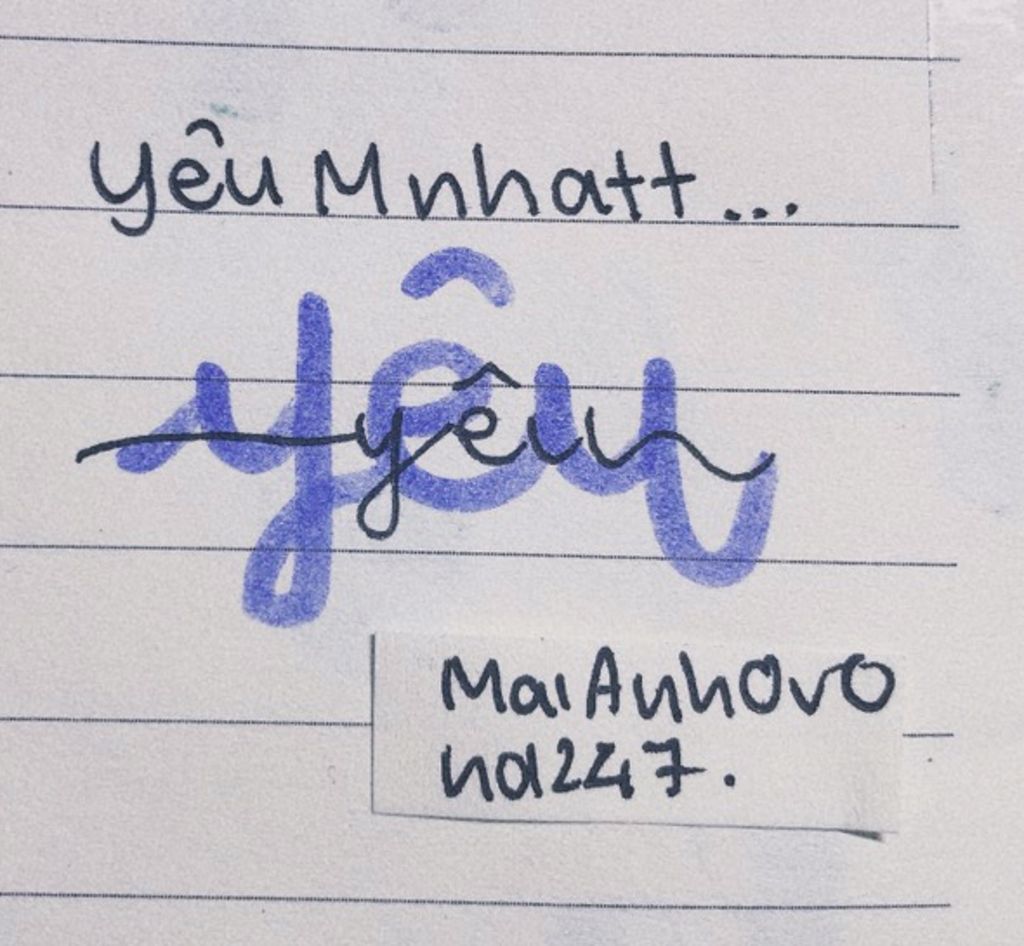 yêu Mnhatt...
yêu
yêu
MaiAnhOvO
hd247.